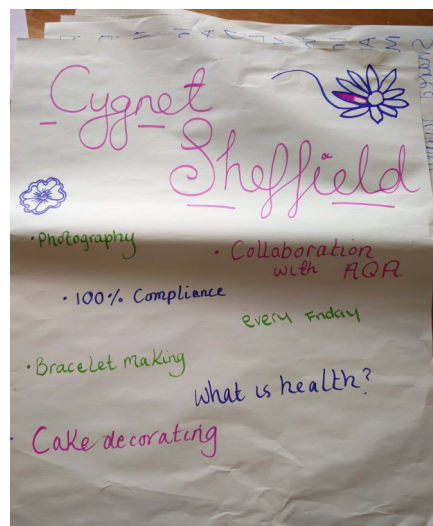 Cygnet
Sheffield
• Photography
• Collaboration
with AQA
• 100% Compliance
every Friday
• Bracelet Making
What is health?
• Cake decorating